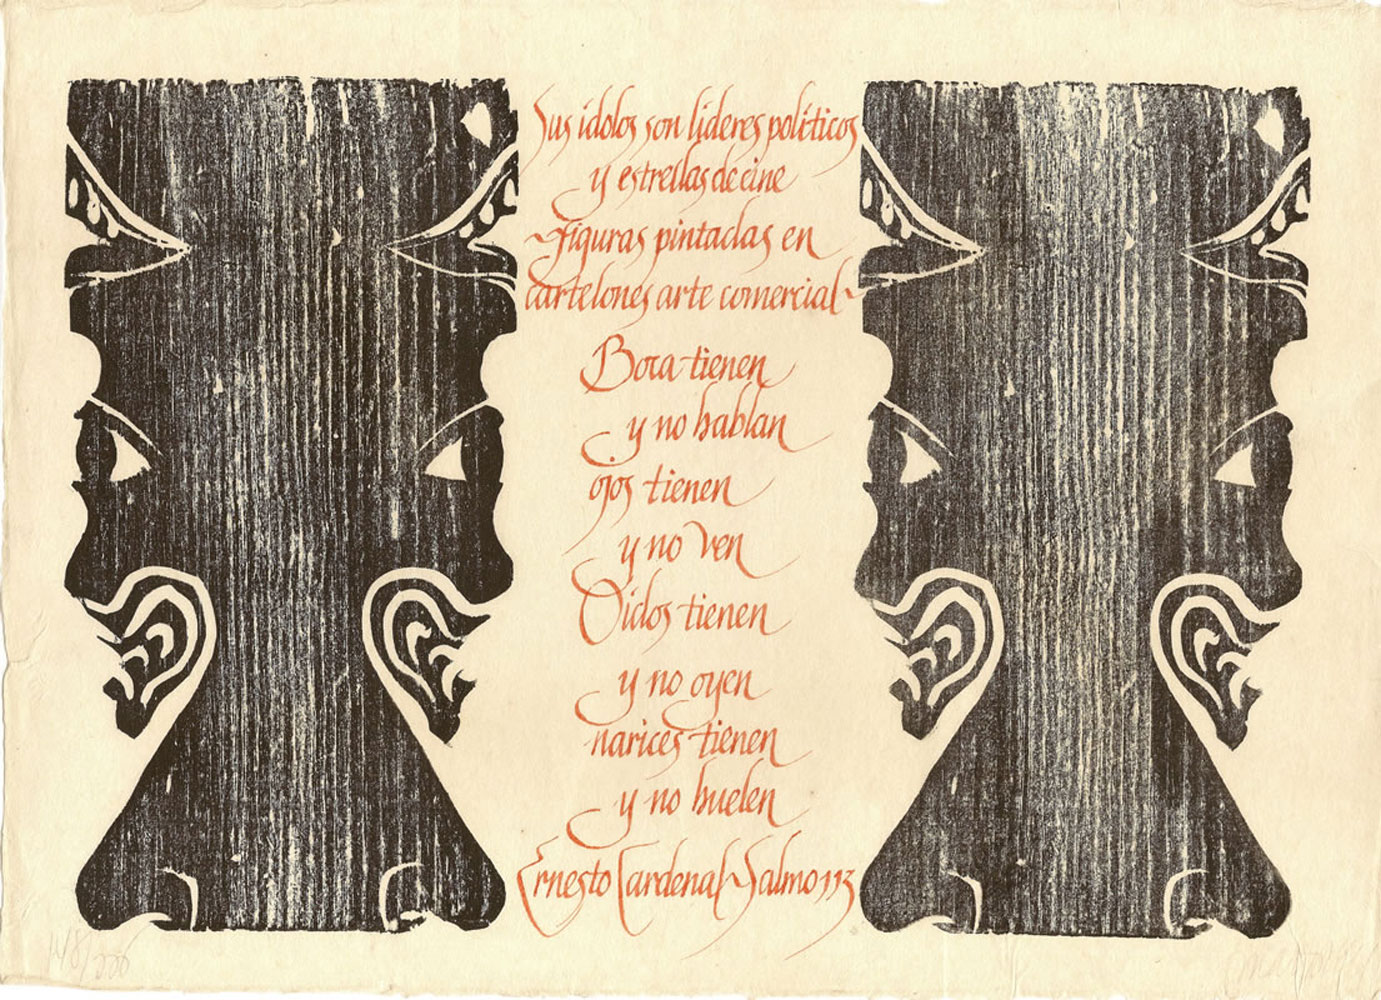 Sus ídolos son líderes políticos
y estrellas de cine
figuras pintadas en
cartelones arte comercial
Boca tienen
y no hablan
ojos tienen
y no ven
Oidos tienen
y no oyen
narices tienen
y no huelen
Ernesto Cardenal Salmo 113